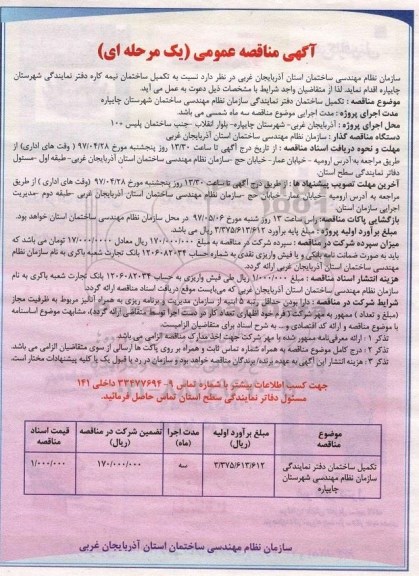 آگهی مناقصه عمومی (یک مرحله ای)
سازمان نظام مهندسی ساختمان استان آذربایجان غربی در نظر دارد نسبت به تکمیل ساختمان نیمه کاره دفتر نمایندگی شهرستان
چایپاره اقدام نماید. لذا از متقاضیان واجد شرایط با مشخصات ذیل دعوت به عمل می آید
موضوع مناقصه : تکمیل ساختمان دفتر نمایندگی سازمان نظام مهندسی ساختمان شهرستان چایپاره
مدت اجرای پروژه : مدت اجرایی موضوع مناقصه سه ماه شمسی می باشد.
محل اجرای پروژه : آذربایجان غربی- شهرستان چایپاره- بلوار انقلاب -جنب ساختمان پلیس ۱۰۰
دستگاه مناقصه گذار : سازمان نظام مهندسی ساختمان استان آذربایجان غربی
مهلت و نحوه دریافت اسناد مناقصه : از تاریخ درج آگهی تا ساعت ۱۳/۳۰ روز پنجشنبه مورخ ۹۷/۰۴/۲۸ (وقت های اداری) از
طریق مراجعه به آدرس ارومیه - خیابان عمار- خیابان حج -سازمان نظام مهندسی ساختمان استان آذربایجان غربی-طبقه اول -مسئول
دفاتر نمایندگی سطح استان.
آخرین مهلت تصویب پیشنهاد ها : از طریق درج آگهی تا ساعت ۱۳/۳۰ روز پنجشنبه مورخ ۹۷/۰۴/۲۸ (وقت های اداری ) از طریق
مراجعه به آدرس ارومیه - خیابان عمار- خیابان حج -سازمان نظام مهندسی ساختمان استان آذربایجان غربی -طبقه دوم -مدیریت
اجرایی سازمان استان.
بازگشایی پاکات مناقصه: راس ساعت ۱۳ روز شنبه مورخ ۹۷/۰۵/۰۶ در محل سازمان نظام مهندسی ساختمان استان خواهد بود.
مبلغ برآورد اولیه پروژه : مبلغ پایه برآورد ۳/۳۷۵/۶۱۳/۶۱۲ ریال می باشد.
میزان سپرده شرکت در مناقصه : سپرده شرکت در مناقصه به مبلغ ۱۷۰/۰۰۰/۰۰۰ ریال معادل ۱۷/۰۰۰/۰۰۰ تومان می باشد که
باید به صورت ضمانت نامه بانکی و یا فیش واریزی نقدی به شماره حساب ۱۲۰۶۰۸۲۰۳۴ بانک تجارت شعبه باکری به نام سازمان نظام
مهندسی ساختمان استان آذربایجان غربی ارائه گردد.
هزینه انتشار اسناد مناقصه : مبلغ ۱/۰۰۰/۰۰۰ ریال طی فیش واریزی به حساب ۱۲۰۶۰۸۲۰۳۴ بانک تجارت شعبه باکری به نام
سازمان نظام مهندسی ساختمان استان آذربایجان غربی که می‌بایست موقع دریافت اسناد مناقصه ارائه گردد
شرایط شرکت در مناقصه : دارا بودن حداقل رتبه ۵ ابنیه از سازمان مدیریت و برنامه ریزی به همراه آنالیز مربوط به ظرفیت مجاز
(مبلغ و تعداد ) ممهور به مهر شرکت ( فرم خود اظهاری تعداد کار در دست اجرا توسط متقاضی ارائه گردد)، مشابهت موضوع اساسنامه
با موضوع مناقصه و ارائه کد اقتصادی و... به شرح اسناد برای متقاضیان الزامیست.
تذکر ۱ : ارائه معرفی‌نامه ممهور شده با مهر شرکت جهت اخذ مدارک مناقصه الزامی می باشد
تذکر ۲ : درج کامل موضوع مناقصه به همراه شماره تماس ثابت و همراه بر روی پاکت ها ارسالی از سوی متقاضیان الزامی می باشد.
تذکر ۳ : هزینه انتشار این آگهی به عهده برنده/برندگان مناقصه خواهد بود و سازمان در رد یا قبول یک یا کلیه پیشنهادات مختار است.
جهت کسب اطلاعات بیشتر با شماره تماس ۹-۳۳۴۷۷۶۹۴ داخلی ۱۴۱
مسئول دفاتر نمایندگی سطح استان تماس حاصل فرمائید.
موضوع مناقصه | مبلغ برآورد اولیه (ریال) | مدت اجرا (ماه) | تضمین شرکت در مناقصه (ریال) | قیمت اسناد مناقصه
تکمیل ساختمان دفتر نمایندگی سازمان نظام مهندسی شهرستان چایپاره | ۳/۳۷۵/۶۱۳/۶۱۲ | سه | ۱۷۰/۰۰۰/۰۰۰ | ۱/۰۰۰/۰۰۰
سازمان نظام مهندسی ساختمان استان آذربایجان غربی